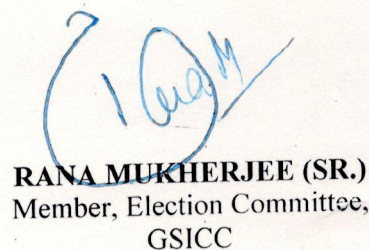 RANA MUKHERJEE (SR.)
Member, Election Committee,
GSICC